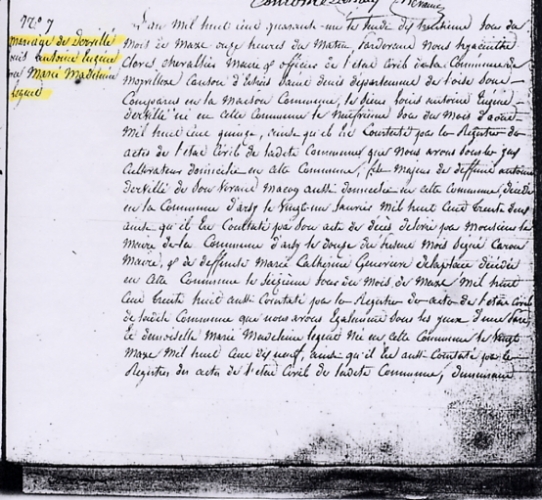 N.o 7
mariage de derville
louis antoine Eugène
ou Marie Madeleine
legend
L'an mil huit cent quarante un le
mois de Mars onze heures du Matin Pardevant Nous hyacinthe
Clovis chevallier Maire & officier de l'état Civil de la Commune de
Moyvillers Canton d'Estrées Saint denis département de l'oise Sont
Comparus en la Maison Commune, le Sieur louis antoine Eugène
derville né en cette Commune le jour du Mois d'aout
Mil huit cent quinze, ainsi qu'il est Constaté par les Registres des
actes de l'état Civil de ladite Commune que Nous avons sous les yeux
Cultivateur domicilié en cette Commune, fils Majeur de deffunt antoine
derville de Son Vivant aussi domicilié en cette Commune, décédé
en la Commune d'arsy le Vingt-un Janvier Mil huit Cent trente deux
ainsi qu'il est Constaté par Son acte de décès délivré par Monsieur le
Maire de la Commune d'arsy le douze du Mois Signé Caron
Maire, & de deffunte Marie Catherine Geneviève delaplace décédée
en Cette Commune le Seizième Jour du Mois de Mars Mil huit
Cent trente huit aussi Constaté par les Registres des actes de l'état Civil
de ladite Commune que nous avons Egalement Sous les yeux d'une Part
Et demoiselle Marie Madeleine legend Née en cette Commune le Vingt
Mars Mil huit Cent dix neuf, ainsi qu'il est aussi Constaté par les
Registres des actes de l'état Civil de ladite Commune, demeurant